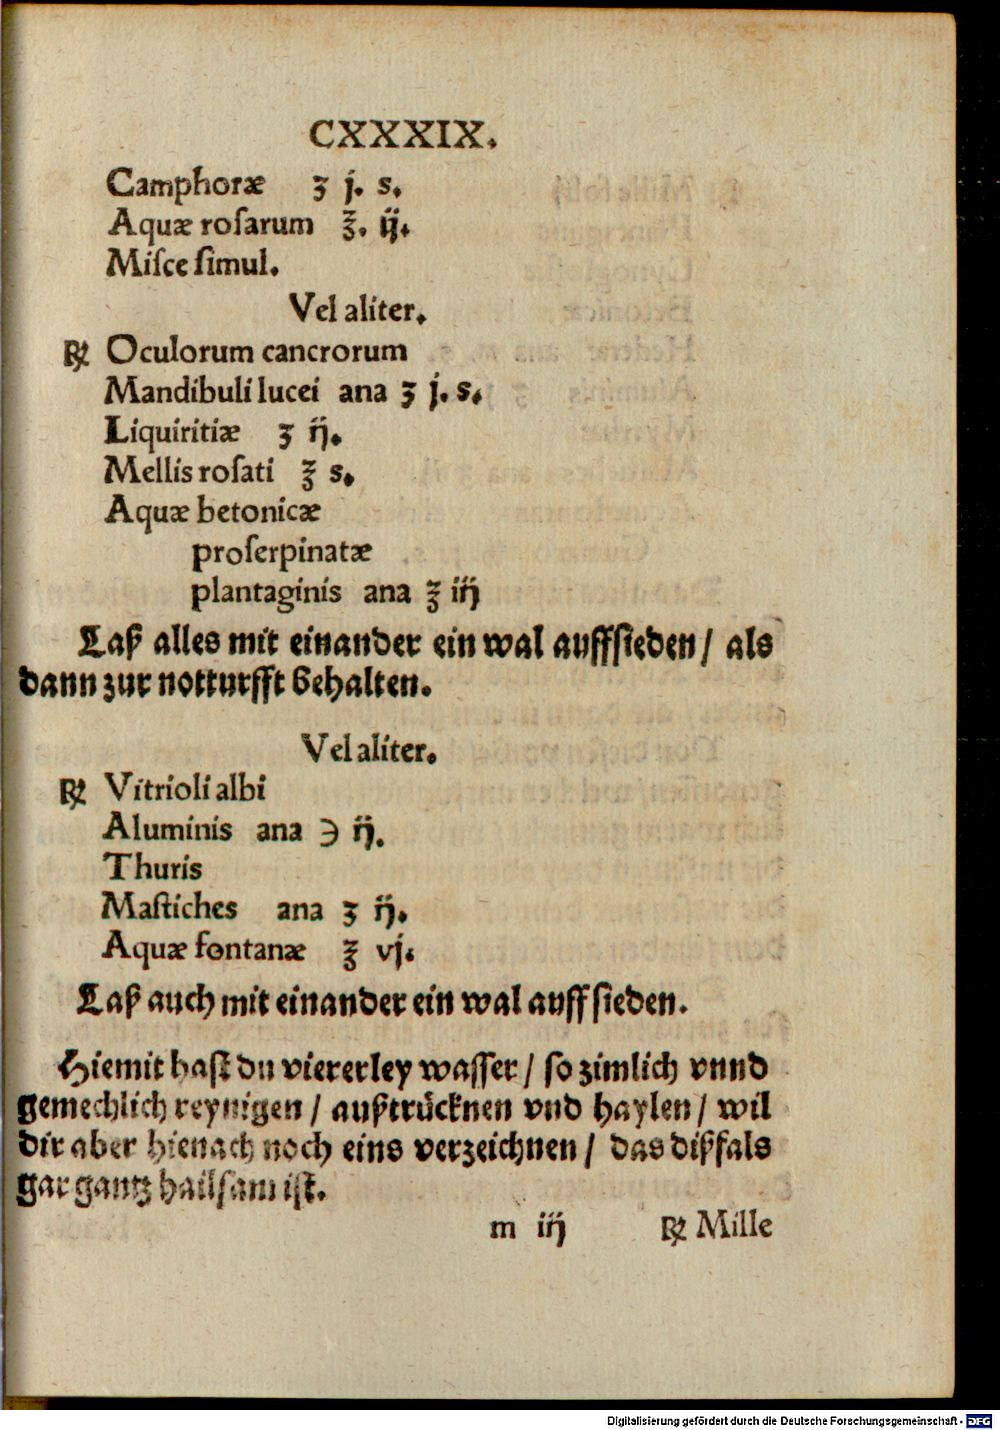 CXXXIX.
Camphoræ ʒ j. s.
Aquæ roſarum ℥. ij.
Miſce ſimul.
Vel aliter.
℞ Oculorum cancrorum
Mandibuli lucei ana ʒ j. s.
Liquiritiæ ʒ ij.
Mellis roſati ℥ s.
Aquæ betonicæ
proſerpinatæ
plantaginis ana ℥ iij
Laß alles mit einander ein wal auffſieden / als
dann zur notturfft behalten.
Vel aliter.
℞ Vitrioli albi
Aluminis ana ℈ ij.
Thuris
Maſtiches ana ʒ ij.
Aquæ fontanæ ℥ vj.
Laß auch mit einander ein wal auffſieden.
Hiemit haſt du viererley waſſer / ſo zimlich vnnd
gemechlich reynigen / außtrücknen vnd haylen / wil
dir aber hienach noch eins verzeichnen / das dißfals
gar gantz hailſam iſt.
m iij ℞ Mille
Digitalisierung gefördert durch die Deutsche Forschungsgemeinschaft - DFG